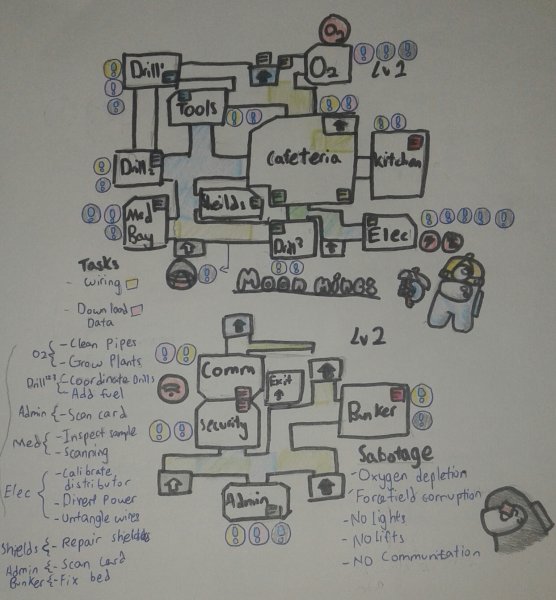 O2
Drill¹
O2
Lv1
Tools
Cafeteria
Kitchen
Drill²
Sheilds
Med
Bay
Drill³
Elec
Moon mines
Tasks
- Wiring
- Download
Data
O2 { - Clean Pipes
- Grow Plants
Drill { - Coordinate Drills
- Add fuel
Admin { - Scan card
Med { - Inspect sample
- Scanning
Elec { - Calibrate
distributor
- Divert Power
- Untangle wires
Shields { - Repair shields
Admin { - Scan card
Bunker { - Fix bed
Lv2
Comm
Exit
Security
Bunker
Admin
Sabotage
- Oxygen depletion
- Forcefield corruption
- No Lights
- No Lifts
- No Communitation